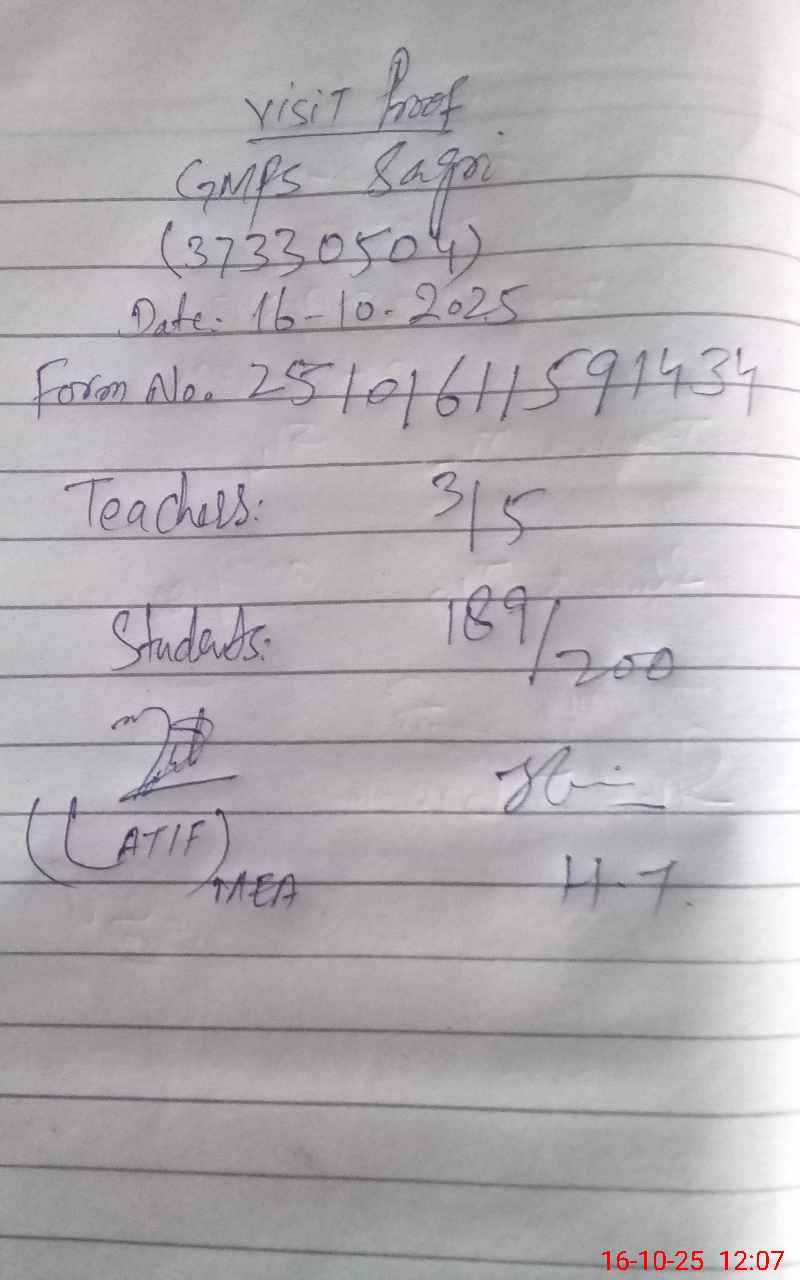 Visit Proof
GMPS Sagri
(37330504)
Date: 16-10-2025
Form No. 25101611591434
Teachers: 3/5
Students: 189/200
(ATIF)
MEA
H.T.
16-10-25 12:07